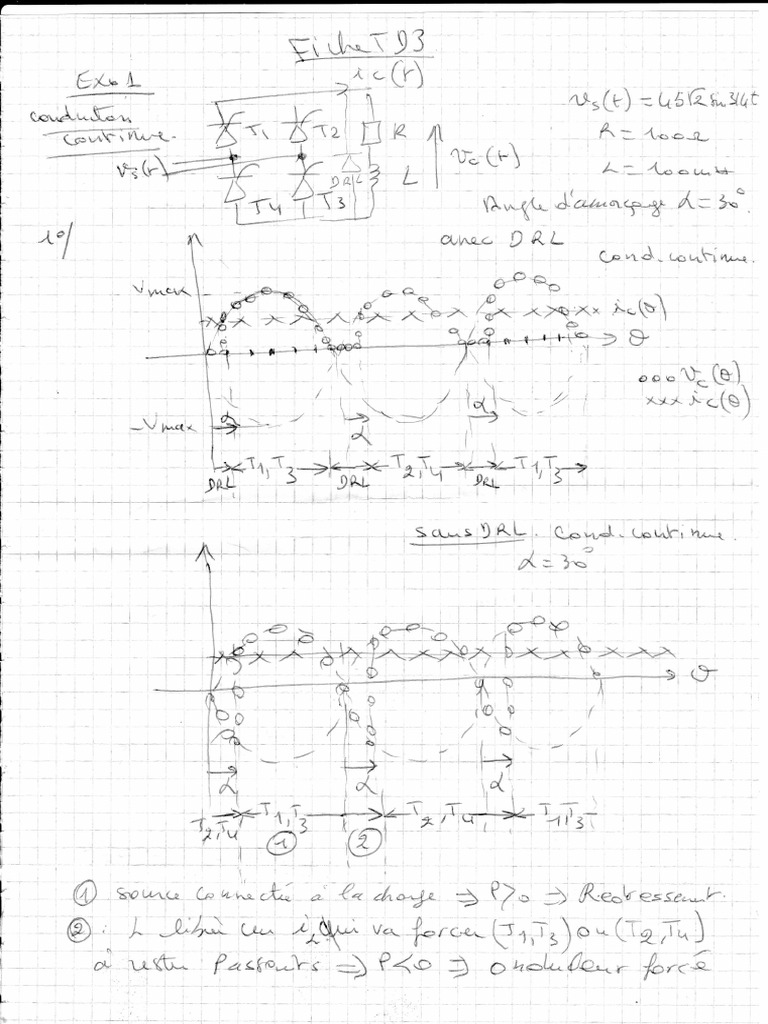 Fiche TD3
Exo1
ic(t)
conduction
continue.
T1
T2
R
vs(t)
Vc(t)
DRL
L
T4
T3
vs(t) = 45√2 sin314t
R = 100Ω
L = 100mH
Angle d'amorçage α = 30°.
1°/
avec DRL
cond. continue.
Vmax
ic(θ)
θ
ooo Vc(θ)
xxx ic(θ)
-Vmax
α
α
α
T1, T3
T2, T4
T1, T3
DRL
DRL
DRL
sans DRL. Cond. continue.
α = 30°
θ
α
α
α
T2, T4
T1, T3
T2, T4
T1, T3
①
②
① source connectée à la charge ⇒ P>0 ⇒ Redresseur.
② : L libère un iL qui va forcer (T1, T3) ou (T2, T4)
à rester Passants ⇒ P<0 ⇒ onduleur forcé